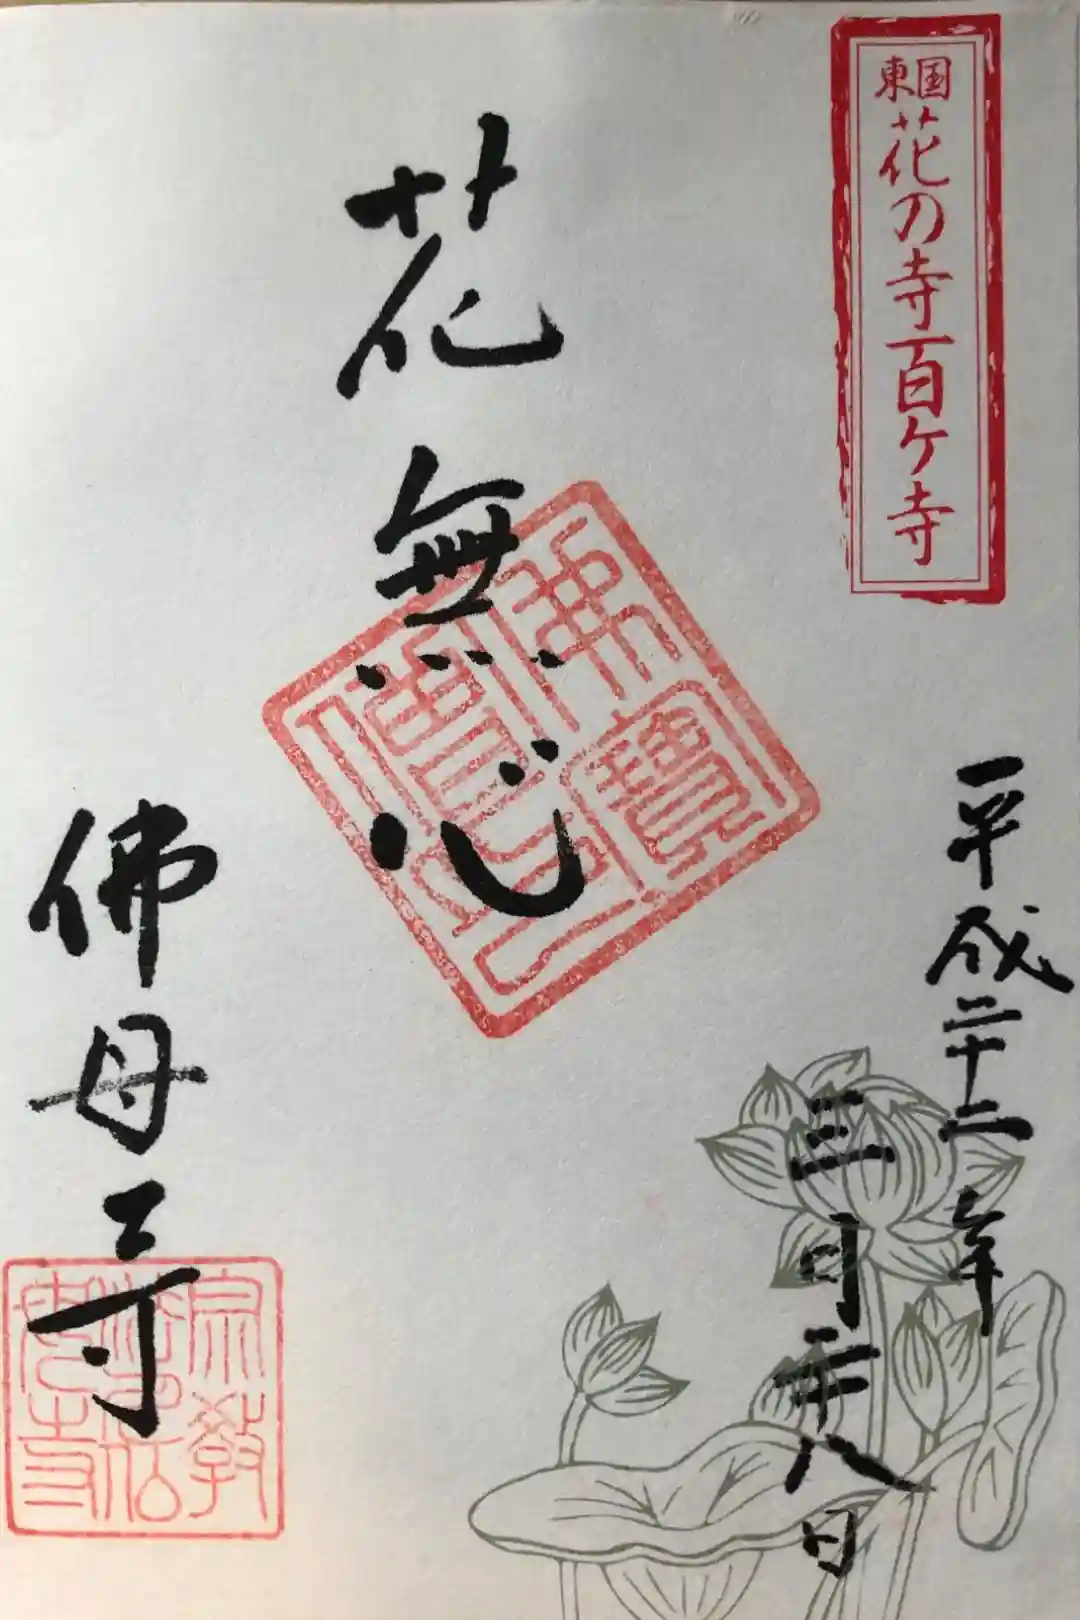 東国花の寺百ケ寺
平成二十二年
三月二十八日
花無心
佛母寺